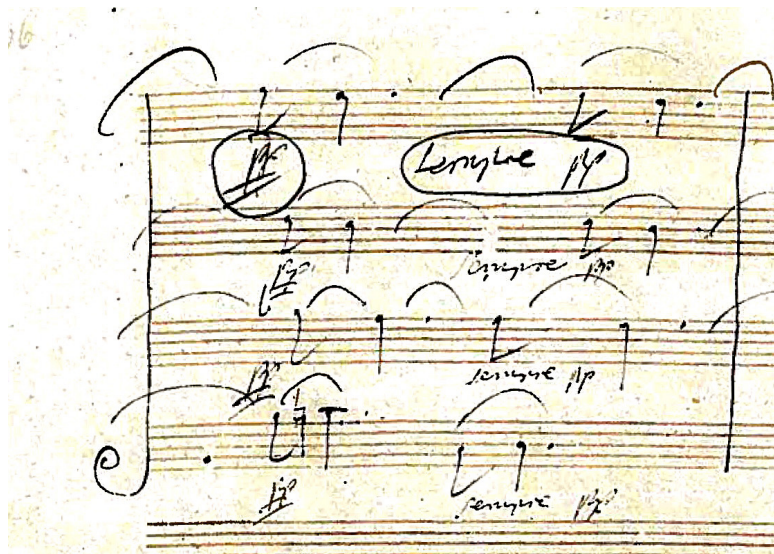 pp sempre pp
pp sempre pp
pp sempre pp
pp sempre pp